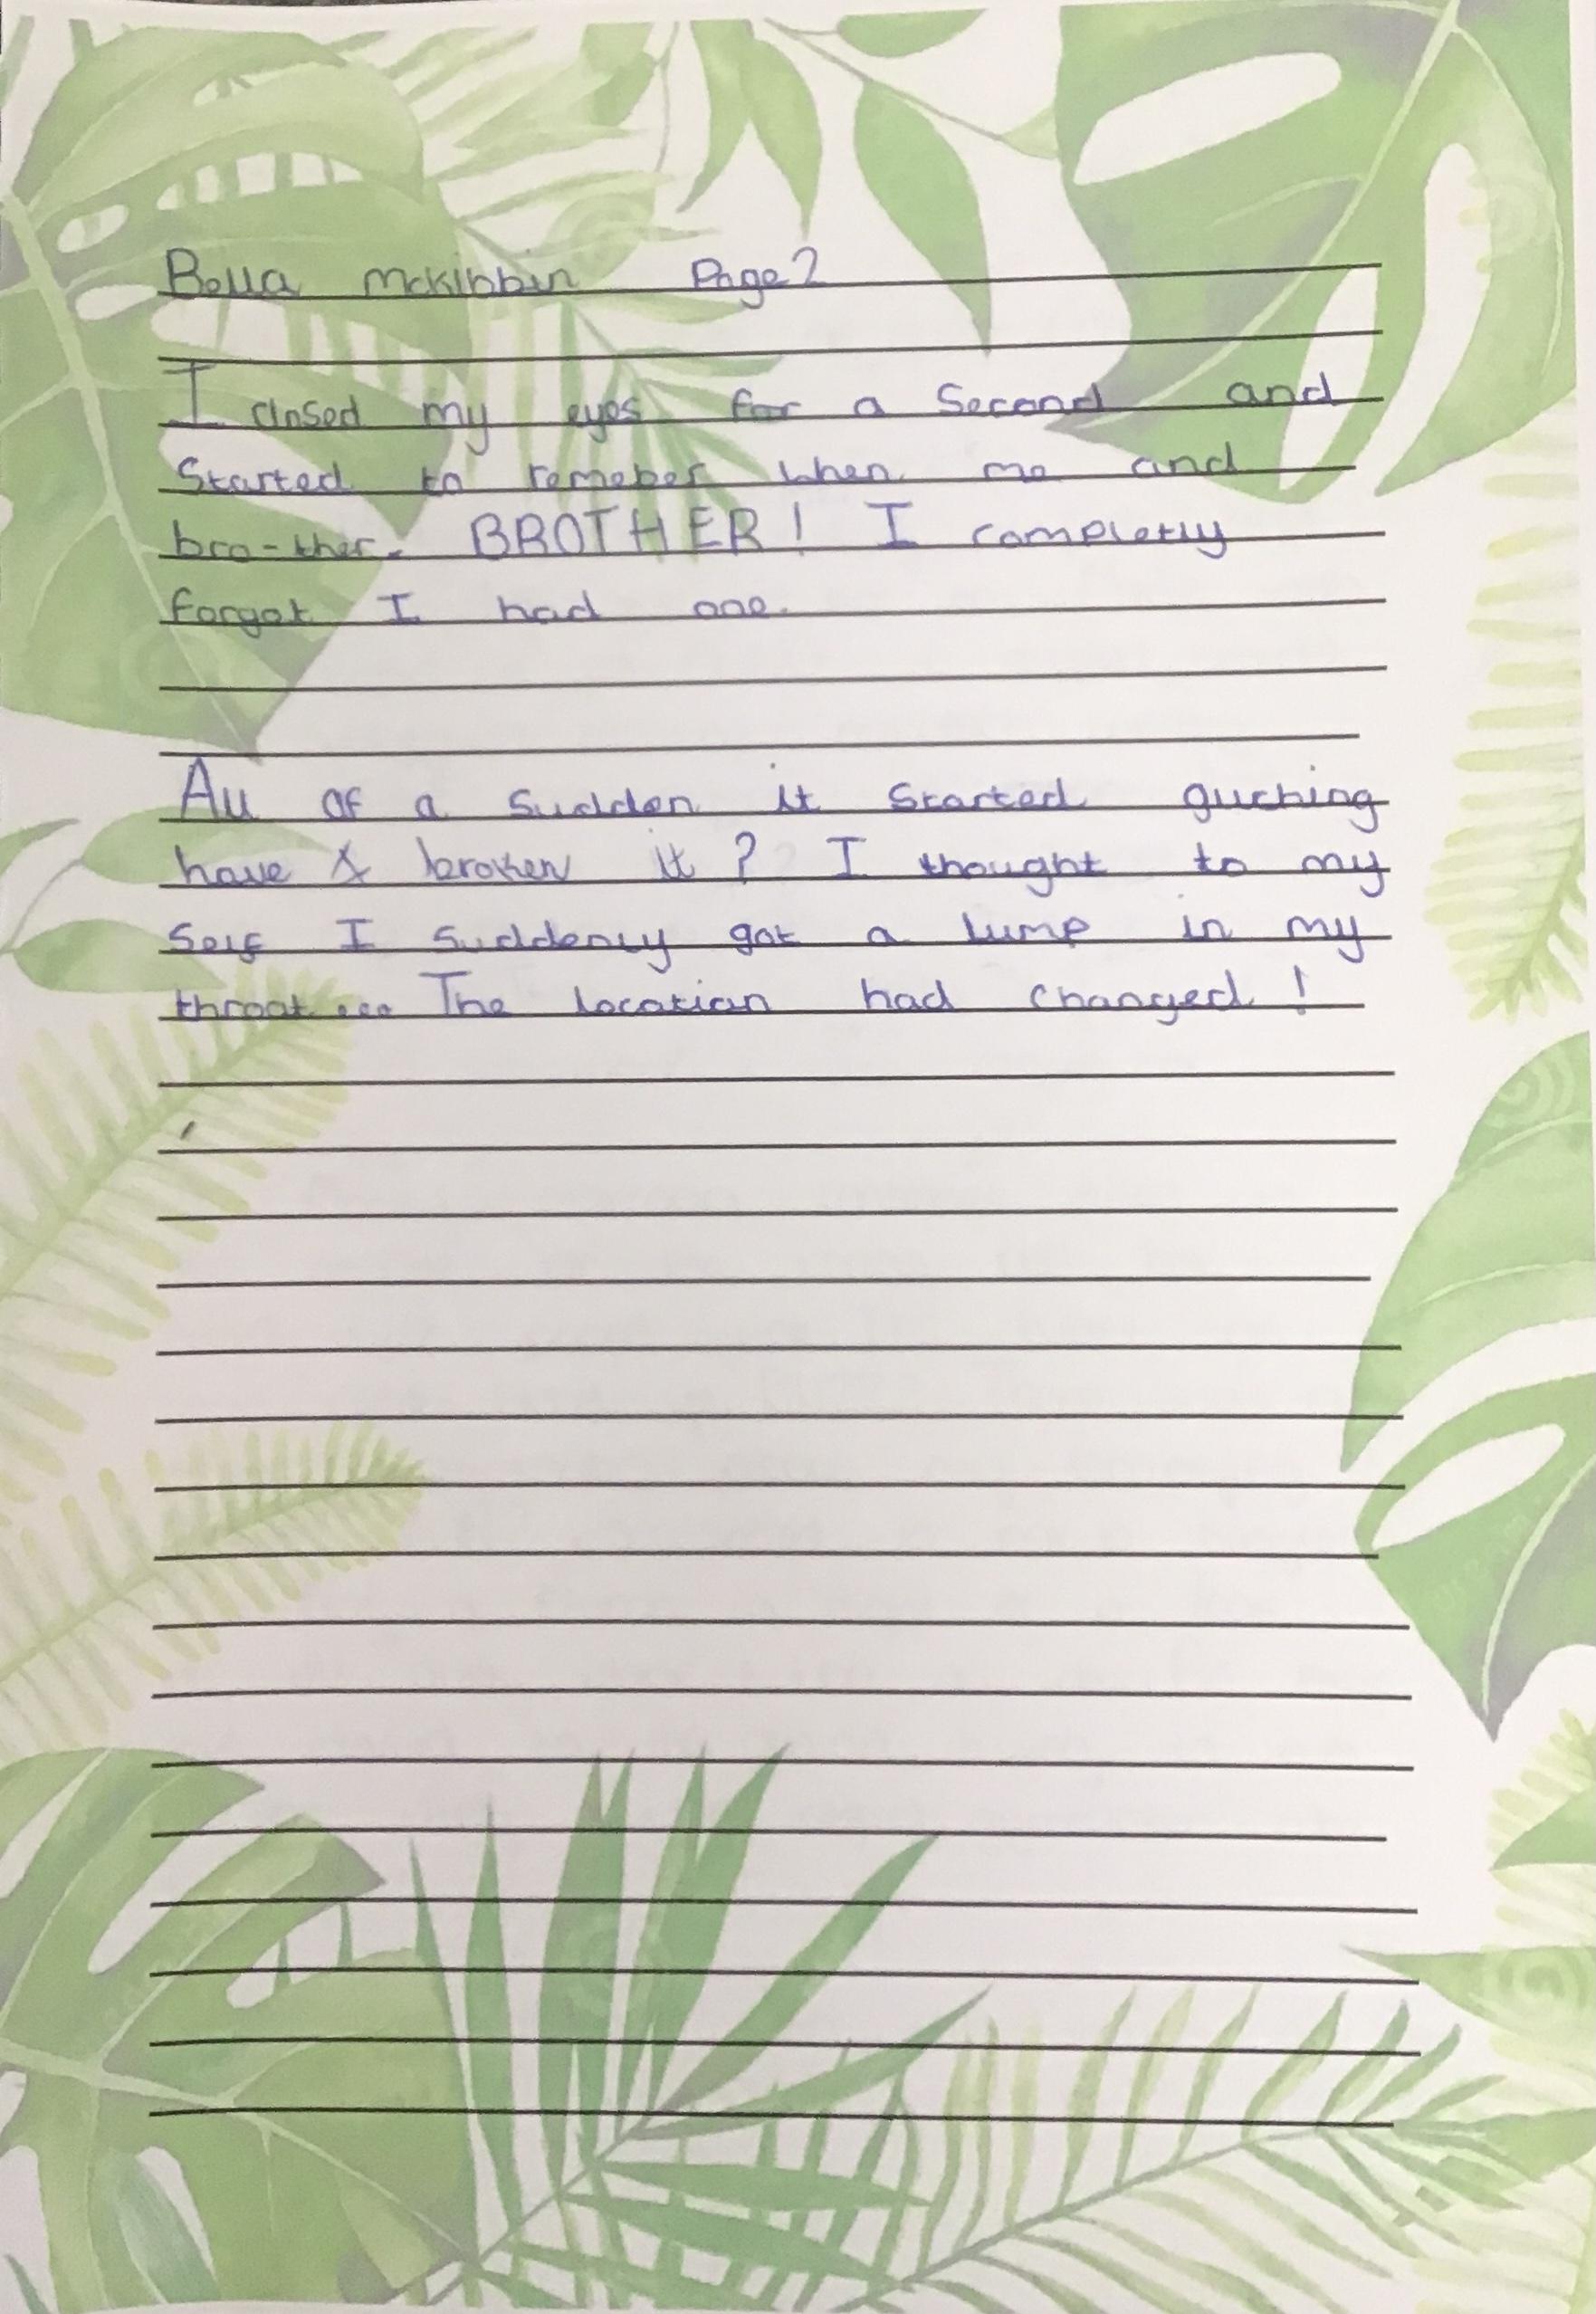 Bella mckibbin Page 2
I closed my eyes for a Second and
Started to remeber when me and
bro-ther. BROTHER! I completly
forgot I had one.
All of a sudden it started guching
have I broken it? I thought to my
self I suddenly got a lump in my
throat... The location had changed!